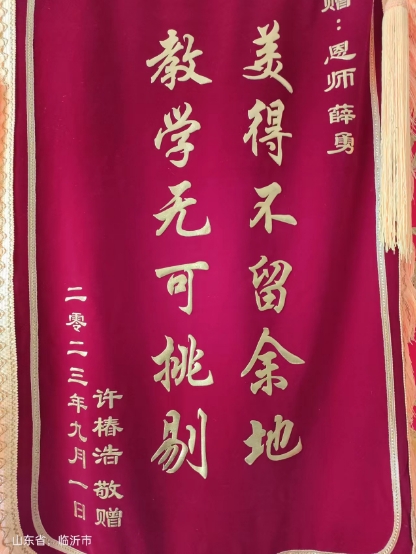 赠：恩师薛勇
美得不留余地
教学无可挑剔
许椿浩敬赠
二零二三年九月一日
山东省：临沂市